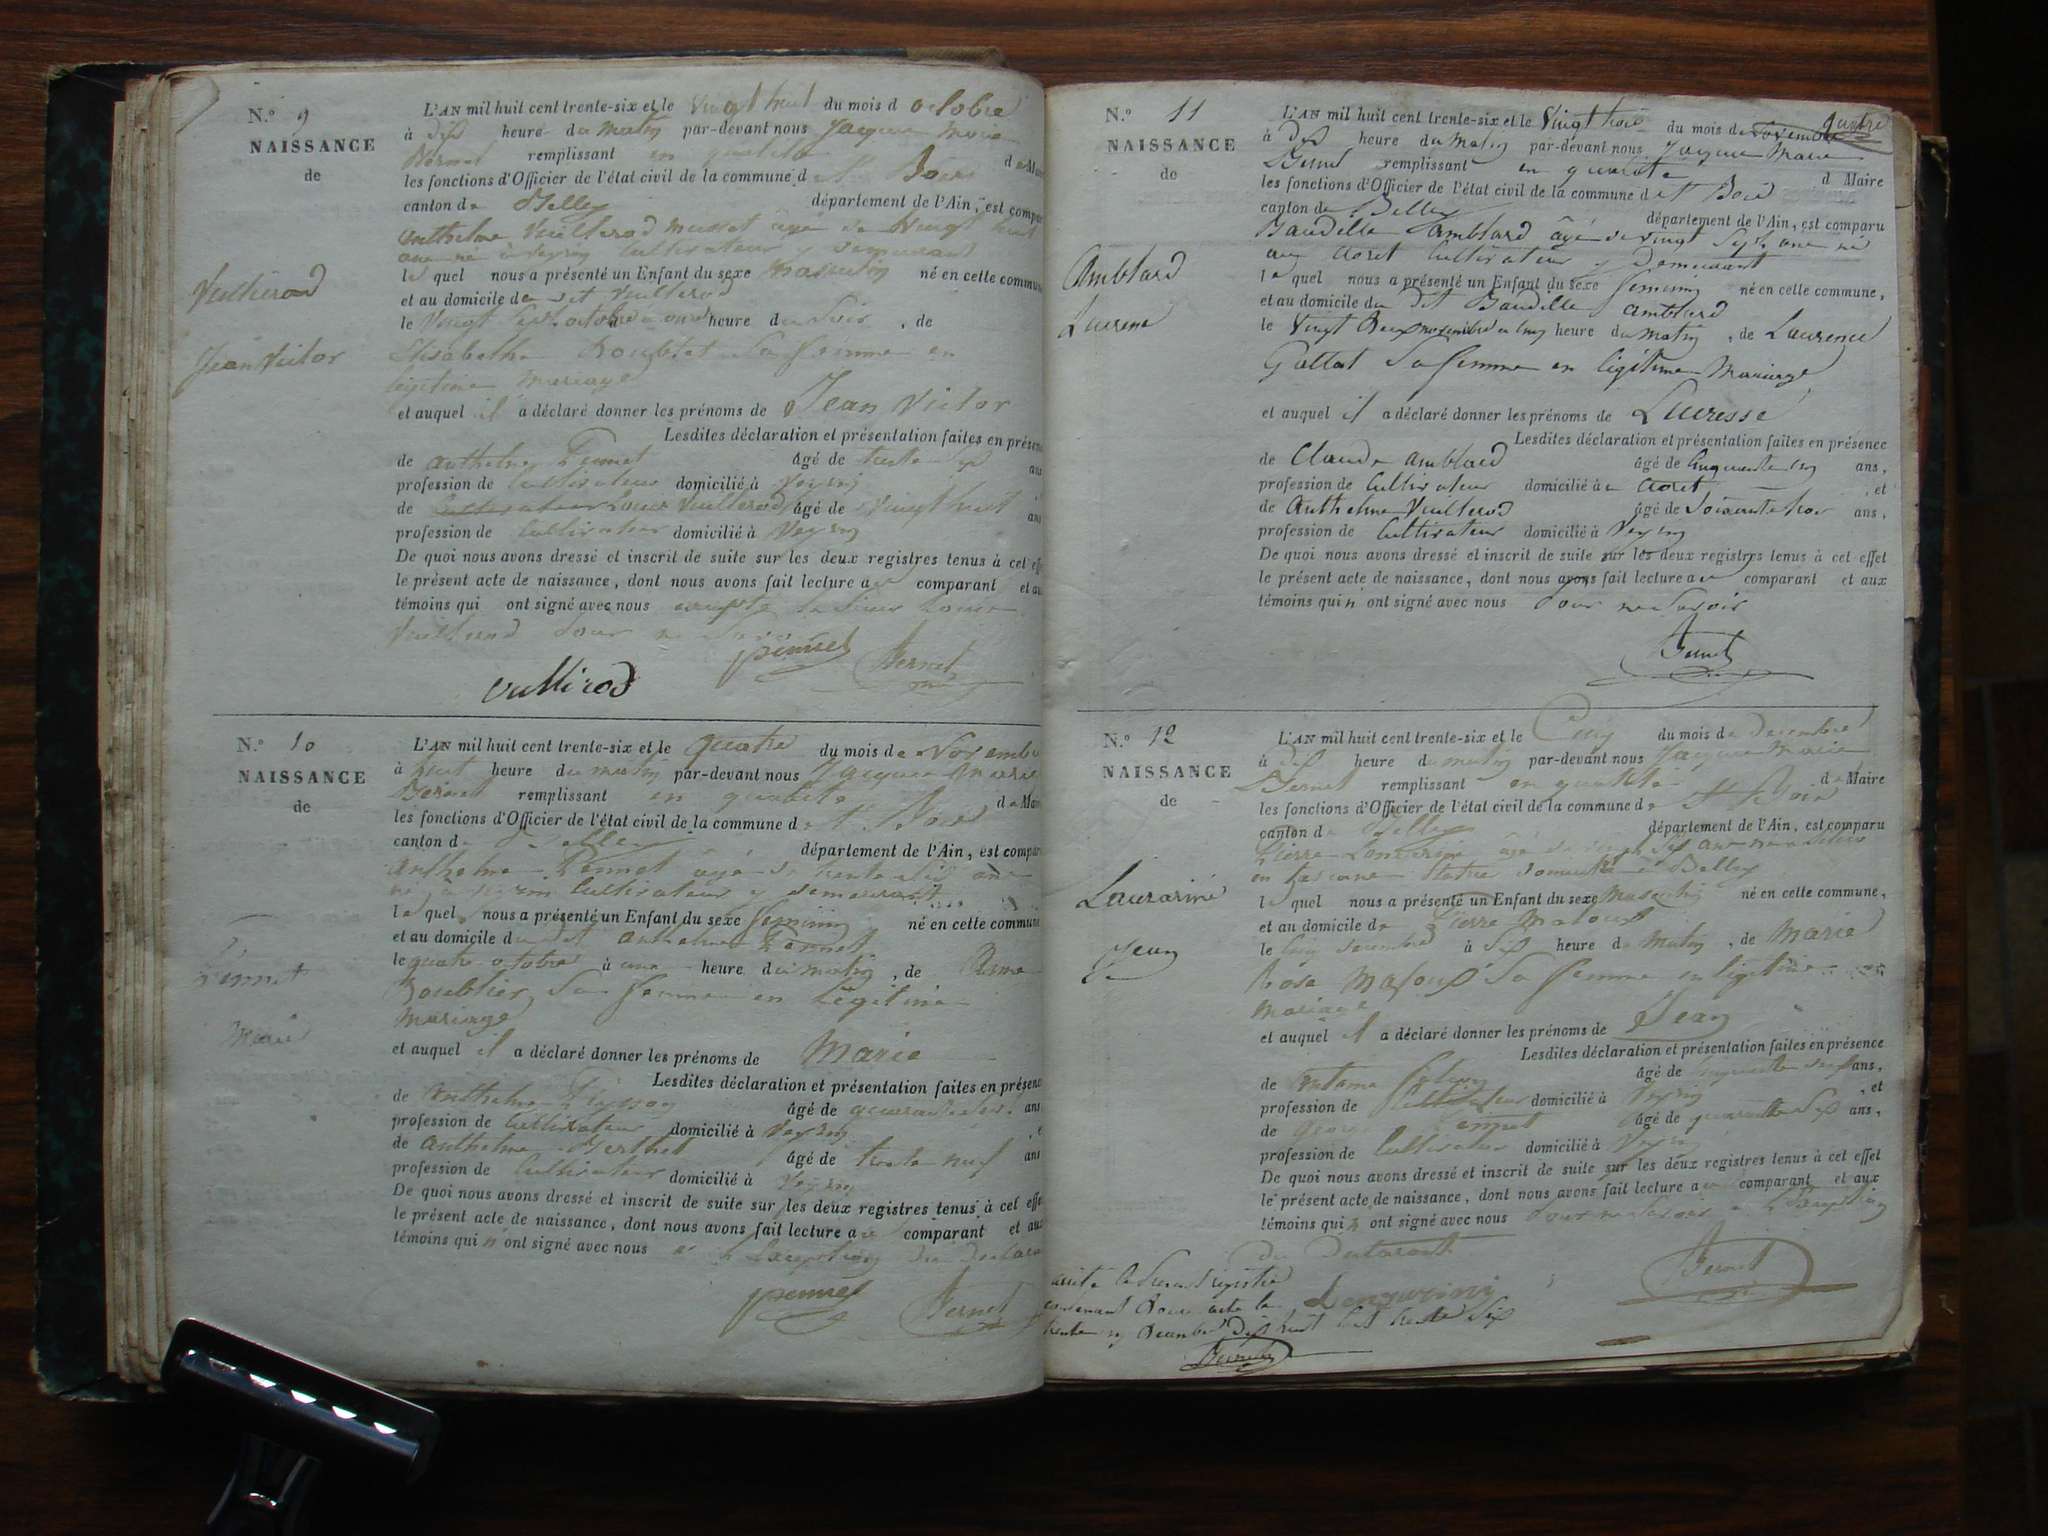 N.° 9
NAISSANCE
de
Vullierod
Jean Victor
L'AN mil huit cent trente-six et le vingt huit du mois d octobre
à dix heure du matin par-devant nous Jacque Marie
Bernet remplissant en qualité de Maire
les fonctions d'Officier de l'état civil de la commune de St Bois
canton de Belley département de l'Ain, est compar
anthelme Vuillerod âgé de vingt huit
cultivateur demeurant
le quel nous a présenté un Enfant du sexe masculin né en cette commune
et au domicile de dit Vuillerod
le vingt sept octobre a onze heure du soir, de
Elisabeth Doublet Sa femme en
légitime mariage
et auquel il a déclaré donner les prénoms de Jean Victor
Lesdites déclaration et présentation faites en présenc
de anthelme Pennet âgé de trente six ans
profession de cultivateur domicilié à Veyrin
de cultivateur Louis Vuillerod âgé de vingt huit ans
profession de cultivateur domicilié à Veyrin
De quoi nous avons dressé et inscrit de suite sur les deux registres tenus à cet effe
le présent acte de naissance, dont nous avons fait lecture au comparant et au
témoins qui ont signé avec nous le Sieur Louis
Vuillerod pour ne savoir
pennet Bernet
vullierod
N.° 10
NAISSANCE
de
Pennet
Marie
L'AN mil huit cent trente-six et le quatre du mois de Novembre
à huit heure du matin par-devant nous Jacque Marie
Bernet remplissant en qualité de Maire
les fonctions d'Officier de l'état civil de la commune de St Bois
canton de Belley département de l'Ain, est compar
anthelme Pennet âgé de trente six ans
né à Veyrin cultivateur y demeurant
le quel nous a présenté un Enfant du sexe feminin né en cette commune
et au domicile du dit anthelme Pennet
le quatre octobre à une heure du matin, de
Doublier Sa femme en légitime
mariage
et auquel il a déclaré donner les prénoms de Marie
Lesdites déclaration et présentation faites en présenc
de anthelme Peysson âgé de ans
profession de cultivateur domicilié à Veyrin
de anthelme Berthet âgé de trente neuf ans
profession de cultivateur domicilié à Veyrin
De quoi nous avons dressé et inscrit de suite sur les deux registres tenus à cet effe
le présent acte de naissance, dont nous avons fait lecture au comparant et aux
témoins qui n'ont signé avec nous a l'exception du declara
pennet Bernet
quatre
N.° 11
NAISSANCE
de
Amblard
Laurence
L'AN mil huit cent trente-six et le vingt trois du mois de novembre
à dix heure du matin par-devant nous Jacque Marie
Bernet remplissant en qualité d Maire
les fonctions d'Officier de l'état civil de la commune de St Bois
canton de Belley département de l'Ain, est comparu
Baudille amblard âgé de vingt sept ans né
au aoret cultivateur y demeurant
le quel nous a présenté un Enfant du sexe feminin né en cette commune,
et au domicile du dit Baudille amblard
le vingt deux novembre a cinq heure du matin, de Laurence
Gallat Sa femme en légitime Mariage
et auquel il a déclaré donner les prénoms de Lauresse
Lesdites déclaration et présentation faites en présence
de Claude amblard âgé de cinquante cinq ans,
profession de cultivateur domicilié à aoret, et
de Anthelme Vuillerod âgé de soixante trois ans,
profession de cultivateur domicilié à Veyrin
De quoi nous avons dressé et inscrit de suite sur les deux registres tenus à cet effet
le présent acte de naissance, dont nous avons fait lecture au comparant et aux
témoins qui n'ont signé avec nous pour ne savoir
Bernet
N.° 12
NAISSANCE
de
Jean
L'AN mil huit cent trente-six et le Cinq du mois de decembre
à dix heure du matin par-devant nous Jacque Marie
Bernet remplissant en qualité de Maire
les fonctions d'Officier de l'état civil de la commune de St Bois
canton de Belley département de l'Ain, est comparu
Pierre âgé de
a Belley
le quel nous a présenté un Enfant du sexe masculin né en cette commune,
et au domicile de Pierre
le cinq decembre à six heure du matin, de Marie
Rose Sa femme en légitime
mariage
et auquel il a déclaré donner les prénoms de Jean
Lesdites déclaration et présentation faites en présence
de âgé de cinquante ans,
profession de cultivateur domicilié à Veyrin, et
de Pennet âgé de quarante six ans,
profession de cultivateur domicilié à Veyrin
De quoi nous avons dressé et inscrit de suite sur les deux registres tenus à cet effet
le présent acte de naissance, dont nous avons fait lecture au comparant et aux
témoins qui n ont signé avec nous pour ne savoir a l'exception
du declarant
Bernet
arrêté le present registre
contenant douze acte le
trente un decembre dix huit cent trente six
Bernet